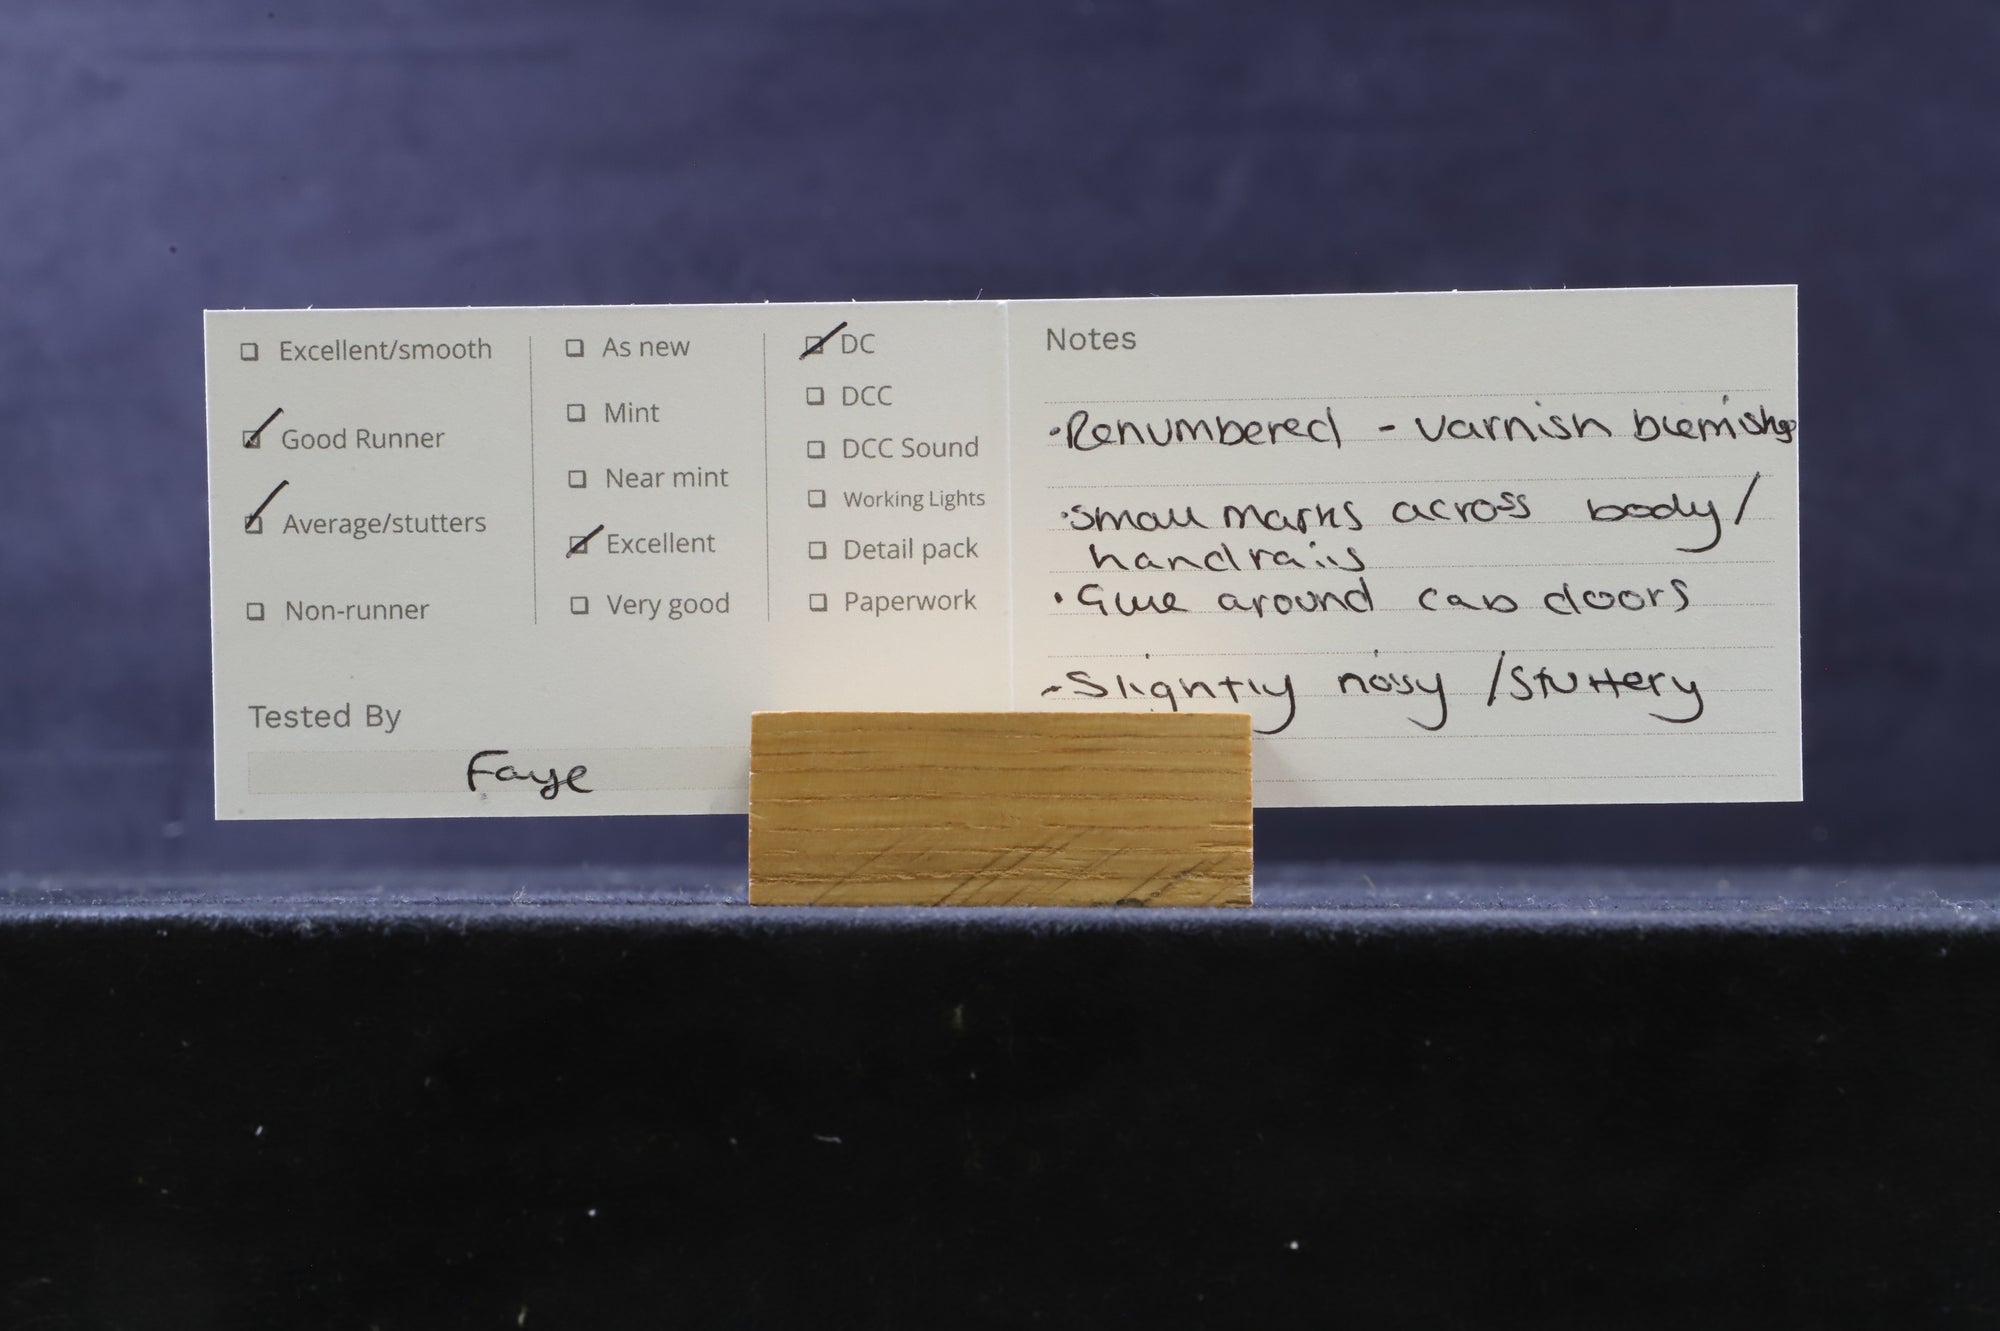 Excellent/smooth
Good Runner
Average/stutters
Non-runner
As new
Mint
Near mint
Excellent
Very good
DC
DCC
DCC Sound
Working Lights
Detail pack
Paperwork
Tested By
Faye
Notes
•Renumbered - varnish blemishes
•small marks across body/
handrails
•Glue around cab doors
-Slightly noisy /stuttery